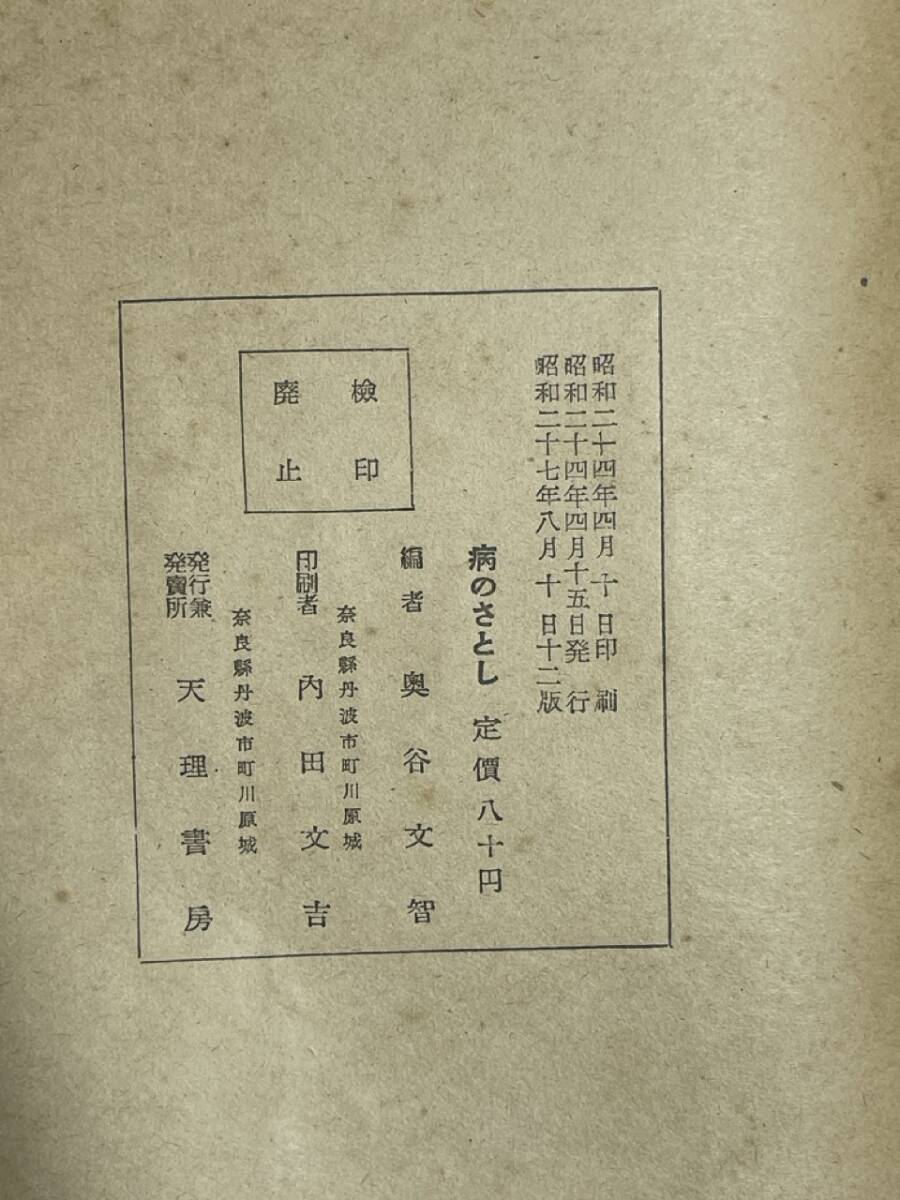 昭和二十四年四月十日印刷
昭和二十四年四月十五日発行
昭和二十七年八月十日十二版
病のさとし 定價八十円
編者 奥谷文智
奈良縣丹波市町川原城
印刷者 内田文吉
奈良縣丹波市町川原城
発行兼
発賣所 天理書房
檢印
廃止